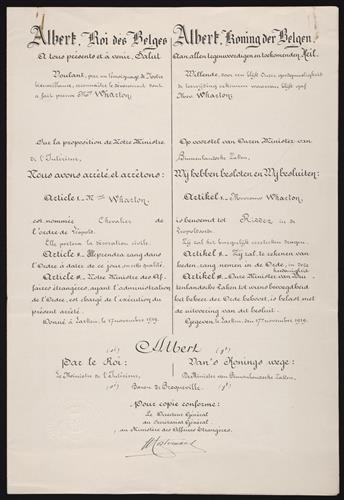 Albert, Roi des Belges
A tous présents et à venir, Salut
Voulant, par un témoignage de Notre
bienveillance, reconnaître le dévouement dont
a fait preuve Mme Wharton,
Sur la proposition de Notre Ministre
de l'Intérieur,
Nous avons arrêté et arrêtons:
Article 1. Mme Wharton,
est nommée Chevalier de
l'ordre de Léopold.
Elle portera la décoration civile.
Article 2. Il prendra rang dans
l'Ordre à dater de ce jour, en cette qualité.
Article 3. Notre Ministre des Af-
faires étrangères, ayant l'administration
de l'Ordre, est chargé de l'exécution du
présent arrêté.
Donné à Laeken, le 17 novembre 1919.
Albert, Koning der Belgen
Aan allen tegenwoordigen en toekomenden Heil.
Willende, door een blijk Onzer goedgunstigheid
de toewijding erkennen waarvan blijk gaf
Mevr. Wharton,
Op voorstel van Onzen Minister van
Binnenlandsche Zaken,
Wij hebben besloten en Wij besluiten:
Artikel 1. Mevrouw Wharton,
is benoemd tot Ridder in de
Leopoldsorde.
Zij zal het burgerlijk eereteeken dragen.
Artikel 2. Zij zal, te rekenen van
heden, rang nemen in de Orde, in deze
hoedanigheid
Artikel 3. Onze Minister van Bui-
tenlandsche Zaken tot wiens bevoegdheid
het beheer der Orde behoort, is belast met
de uitvoering van dit besluit.
Gegeven te Laeken, den 17n november 1919.
(sé) Albert (gt)
Par le Roi:
Le Ministre de l'Intérieur,
Van 's Konings wege:
De Minister van Binnenlandsche Zaken,
(sé) Baron de Broqueville. (gt)
Pour copie conforme:
Le Directeur Général
au Secrétariat Général
au Ministère des Affaires Etrangères.